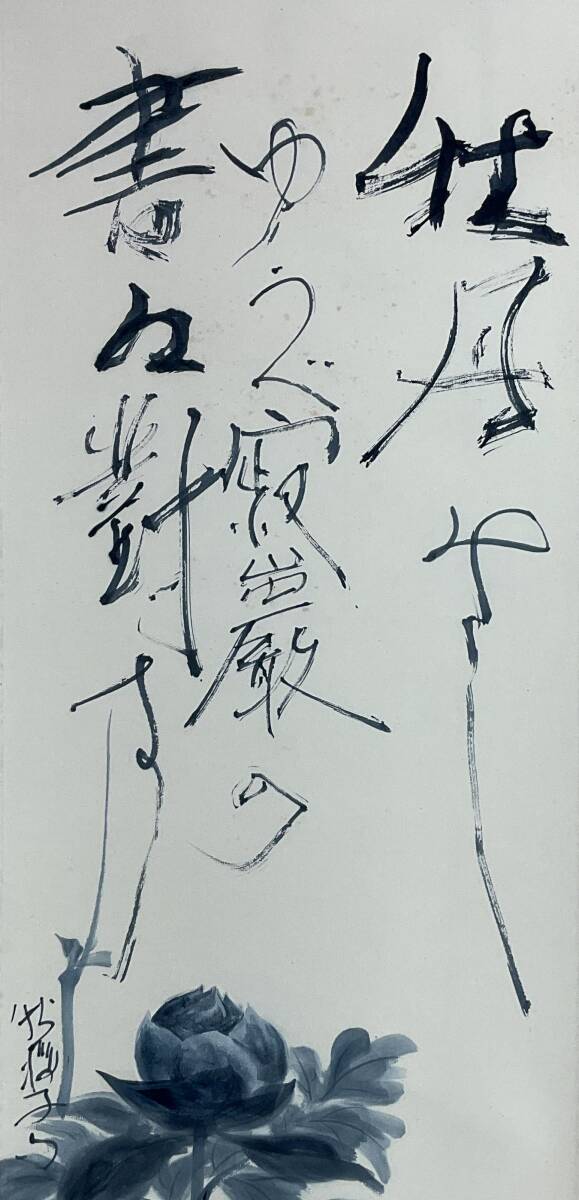 牡丹や
ゆうべ寂嚴の
書に對す